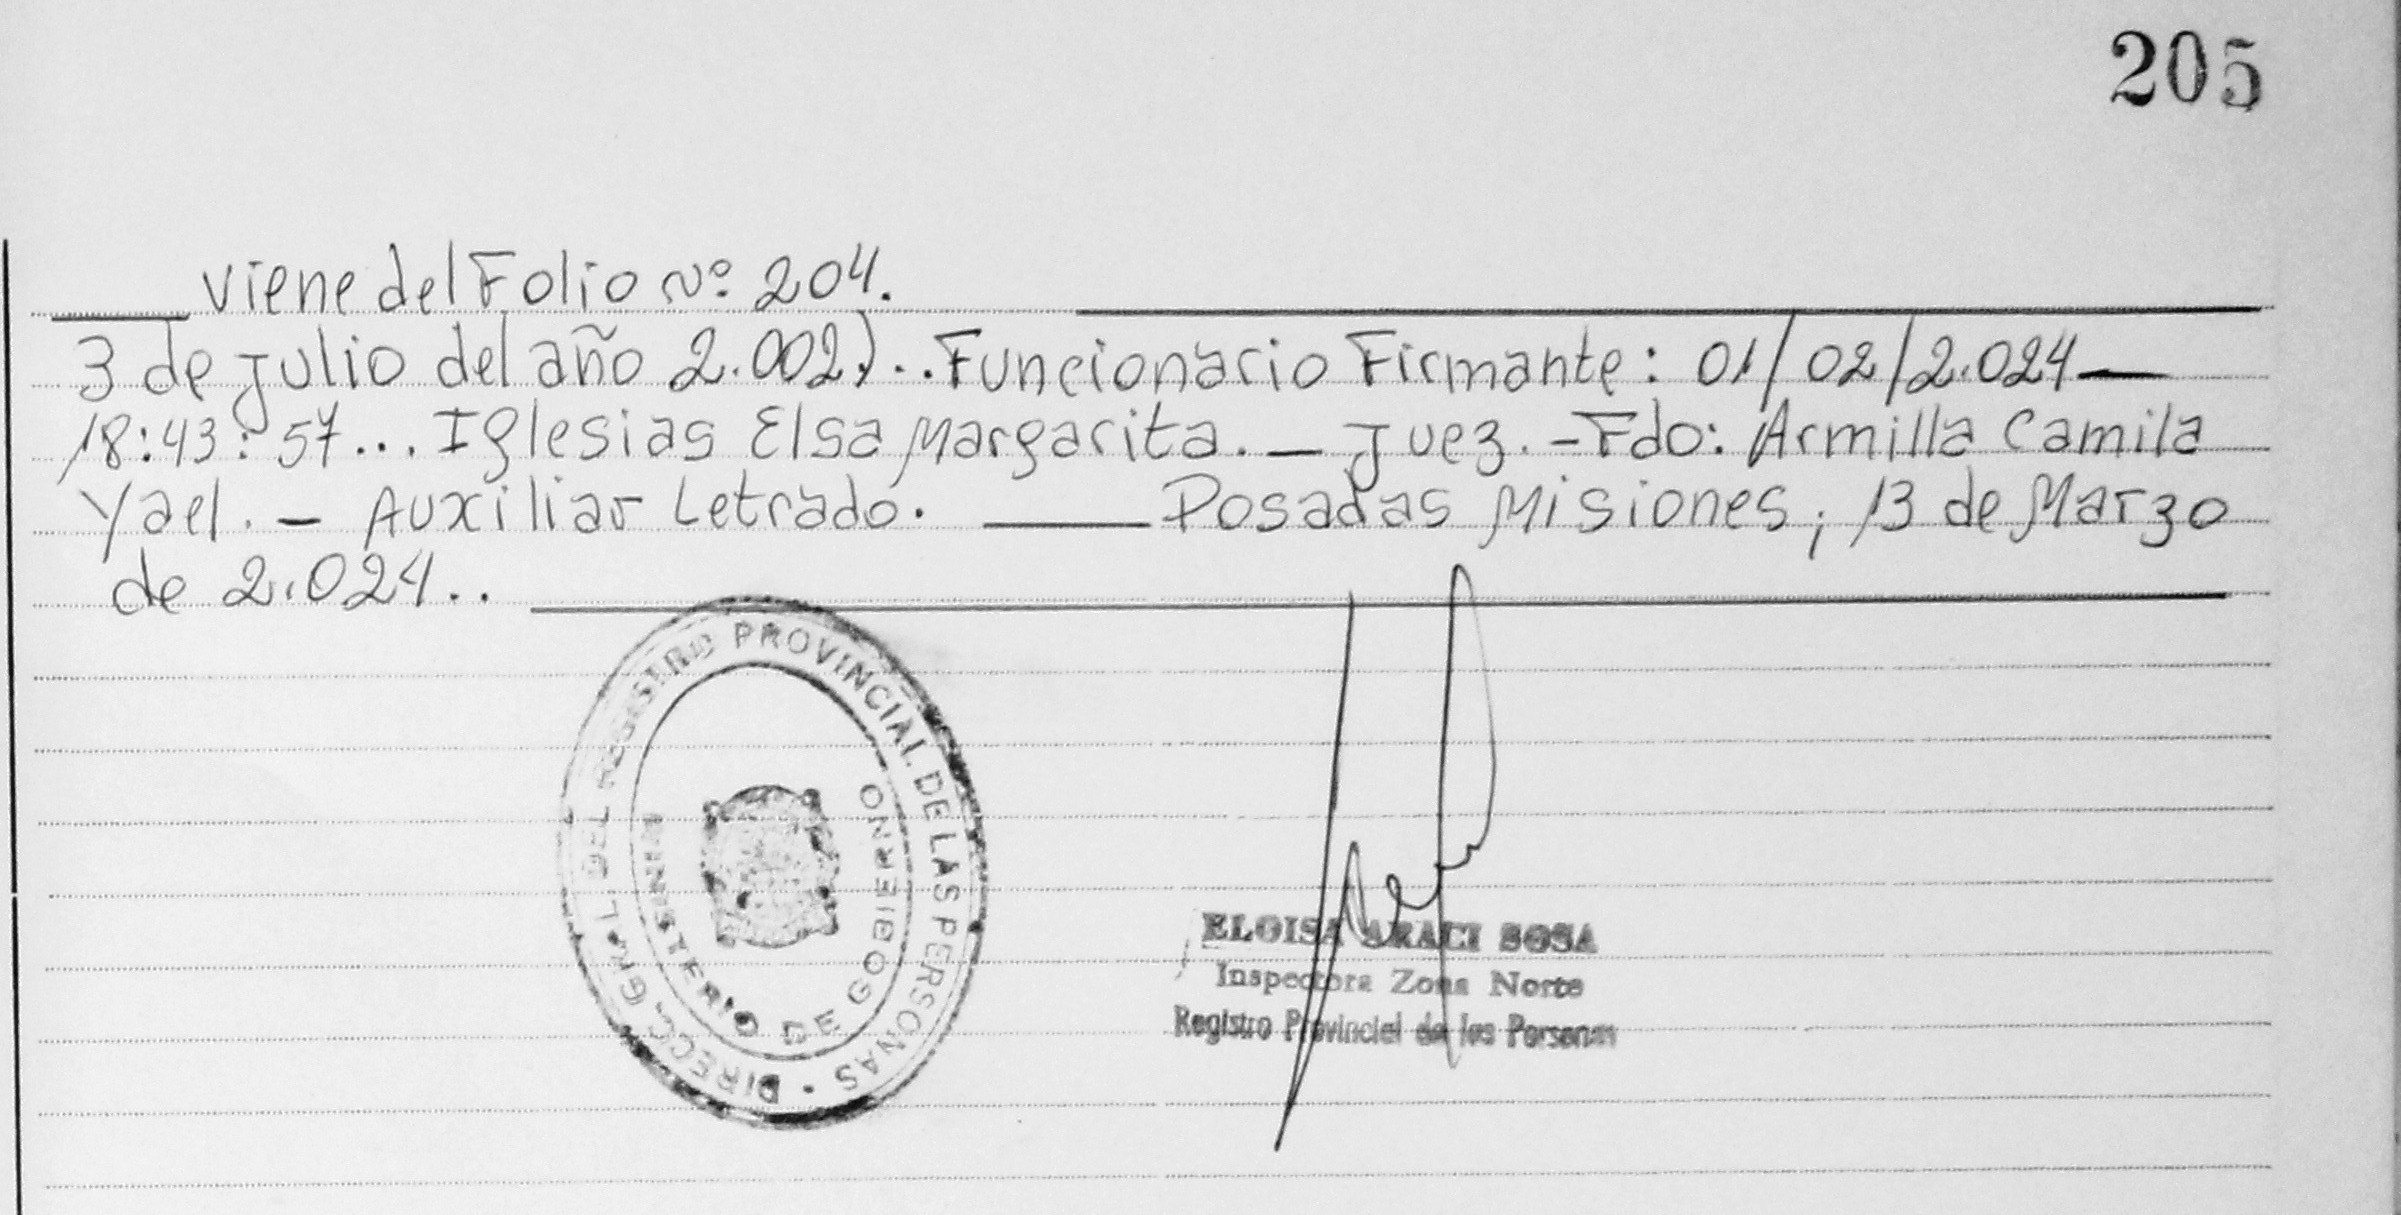 205
viene del Folio Nº: 204.
3 de Julio del año 2.002.)...Funcionario Firmante: 01/02/2.024—
18:43:57... Iglesias Elsa Margarita. — Juez. -Fdo: Armilla Camila
Yael. — Auxiliar Letrado. — Posadas Misiones, 13 de Marzo
de 2.024..
DIRECC. GRAL. DEL REGISTRO PROVINCIAL DE LAS PERSONAS •
MINISTERIO DE GOBIERNO
ELOISA ARACI SOSA
Inspectora Zona Norte
Registro Provincial de las Personas